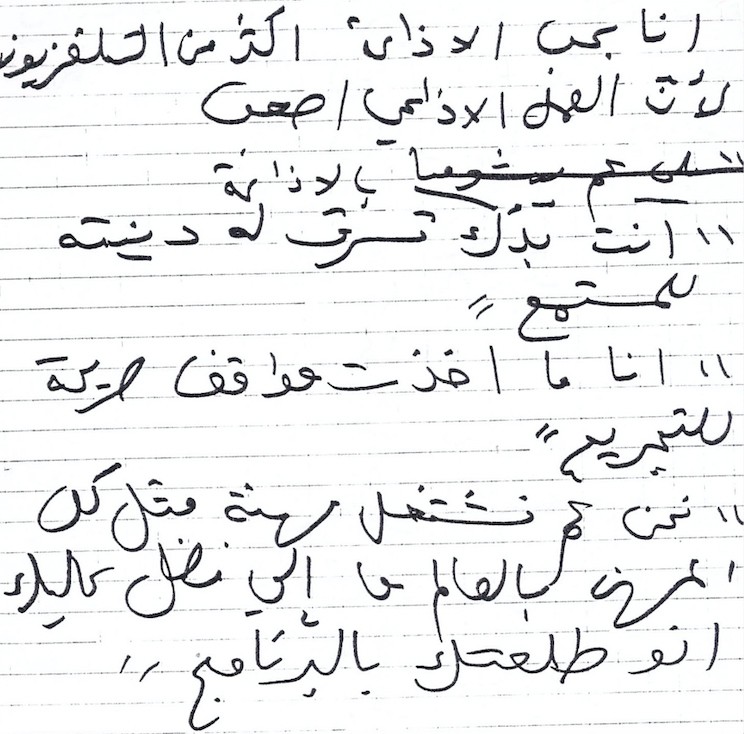 انا بحب الاذاعة اكثر من التلفزيون
لأن العمل الاذاعي اصعب
بالاذاعة
"انت بدك تسرق له دينيته
للمستمع"
"انا ما اخذت مواقف صريحة
للتجريح"
"نحن عم نشتغل مهنة متل كل
المهن بالعالم ما الي فضل عليك
انو طلعتك بالبرنامج"